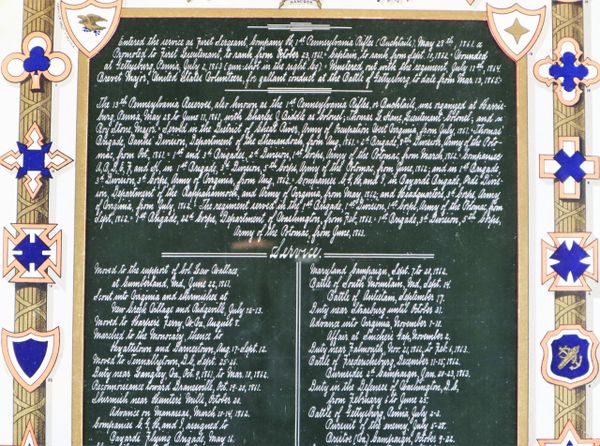 Entered the service as First Sergeant, Company 1st Pennsylvania Rifles (Bucktails), May 28th, 1861. &
Promoted to First Lieutenant, to rank from October 23, 1861. Captain, to rank from Sept. 10, 1862. Wounded
at Gettysburg, Penna, July 2, 1863 (gun-shot in the right leg). Mustered out with the regiment, July 11th, 1864.
Brevet Major, United States Volunteers, for gallant conduct at the Battle of Gettysburg to date from Mar. 13, 1865.
The 13th Pennsylvania Reserves, also known as the 1st Pennsylvania Rifles, or Bucktails, was organized at Harris-
burg, Penna, May 28 to June 11, 1861, with Charles J. Biddle as Colonel; Thomas L. Kane, Lieutenant Colonel; and
Roy Stone, Major. Served in the District of Army of Occupation West Virginia, from July, 1861. Thomas'
Brigade, Banks' Division, Department of the Shenandoah, from Aug. 1861. 2nd Brigade, Division, Army of the Poto-
mac, from Oct. 1861. 1st and 3rd Brigade, 2nd Division, 1st Corps, Army of the Potomac, from March, 1862. Companies
A, B, D, E, F, and K, in 1st Brigade, 3rd Division, 5th Corps, Army of the Potomac, from June, 1862; and in 1st Brigade,
3rd Division, 3rd Corps, Army of Virginia, from Aug. 1862. Companies C, G, H, and I, in Bayard's Brigade, Division,
Department of the Rappahannock and Army of Virginia, from May, 1862; and Headquarters, 3rd Corps, Army
of Virginia, from July, 1862. The regiment served in the 1st Brigade, Division, 1st Corps, Army of the Potomac, from
Sept. 1862. 1st Brigade, 22nd Corps, Department of Washington, from Feb. 1863. 1st Brigade, 3rd Division, 5th Corps,
Army of the Potomac, from June, 1863.
Service.
Moved to the support of Col. Lew Wallace,
at Cumberland, Md., June 22, 1861.
Scout into Virginia and skirmishes at
New Creek Village and Ridgeville, July 12-13.
Moved to Harpers Ferry, W. Va., August 8.
Marched to the Monocacy, thence to
Hyattstown and Darnestown, Aug. 17-Sept. 12.
Moved to Tennallytown, D.C., Sept. 25-26.
Duty near Langley, Va., Oct. 9, 1861, to Mar. 10, 1862.
Reconnoissance toward Dranesville, Oct. 19-20, 1861.
Skirmish near Hunter's Mills, October 20.
Advance on Manassas, March 10-14, 1862.
Companies C, G, H, and I, assigned to
Bayard's Flying Brigade, May 16.
Maryland Campaign, Sept. 7 to 20, 1862.
Battle of South Mountain, Md., Sept. 14.
Battle of Antietam, September 17.
Duty near Sharpsburg until October 31.
Advance into Virginia, November 7-10.
November 2.
Duty near Falmouth, Nov. 21, 1862, to Feb. 6, 1863.
Battle of Fredericksburg, December 11-15, 1862.
Burnside's 2nd Campaign, Jan. 20-23, 1863.
Duty in the Defenses of Washington, D.C.,
from February 6 to June 25.
Battle of Gettysburg, Penna, July 2-3.
Pursuit of the enemy, July 5-25.
Bristoe (Va.) Campaign, October 9-22.